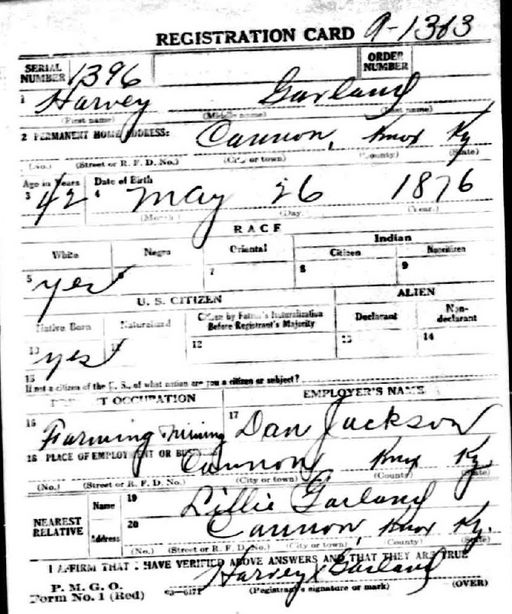 REGISTRATION CARD
SERIAL NUMBER 1396 ORDER NUMBER
1 Harvey Garland
(First name) (Middle name) (Last name)
2 PERMANENT HOME ADDRESS: Cannon, Knox Ky
(No.) (Street or R. F. D. No.) (City or town) (County) (State)
Age in Years Date of Birth
3 42 4 May 26 1876
(Month) (Day) (Year)
RACE
White Negro Oriental Indian
Citizen Noncitizen
5 yes 6 7 8 9
U. S. CITIZEN ALIEN
Native Born Naturalized Citizen by Father's Naturalization Before Registrant's Majority Declarant Non-declarant
10 yes 11 12 13 14
15 If not a citizen of the U. S., of what nation are you a citizen or subject?
OCCUPATION EMPLOYER'S NAME
16 Farming Mining 17 Dan Jackson
18 PLACE OF EMPLOYMENT OR BUSINESS Cannon Knox Ky
(No.) (Street or R. F. D. No.) (City or town) (County) (State)
NEAREST RELATIVE Name 19 Lillie Garland
Address 20 Cannon, Knox Ky.
(No.) (Street or R. F. D. No.) (City or town) (County) (State)
I AFFIRM THAT I HAVE VERIFIED ABOVE ANSWERS AND THAT THEY ARE TRUE
Harvey x Garland
P. M. G. O.
Form No. 1 (Red) (Registrant's signature or mark) (OVER)